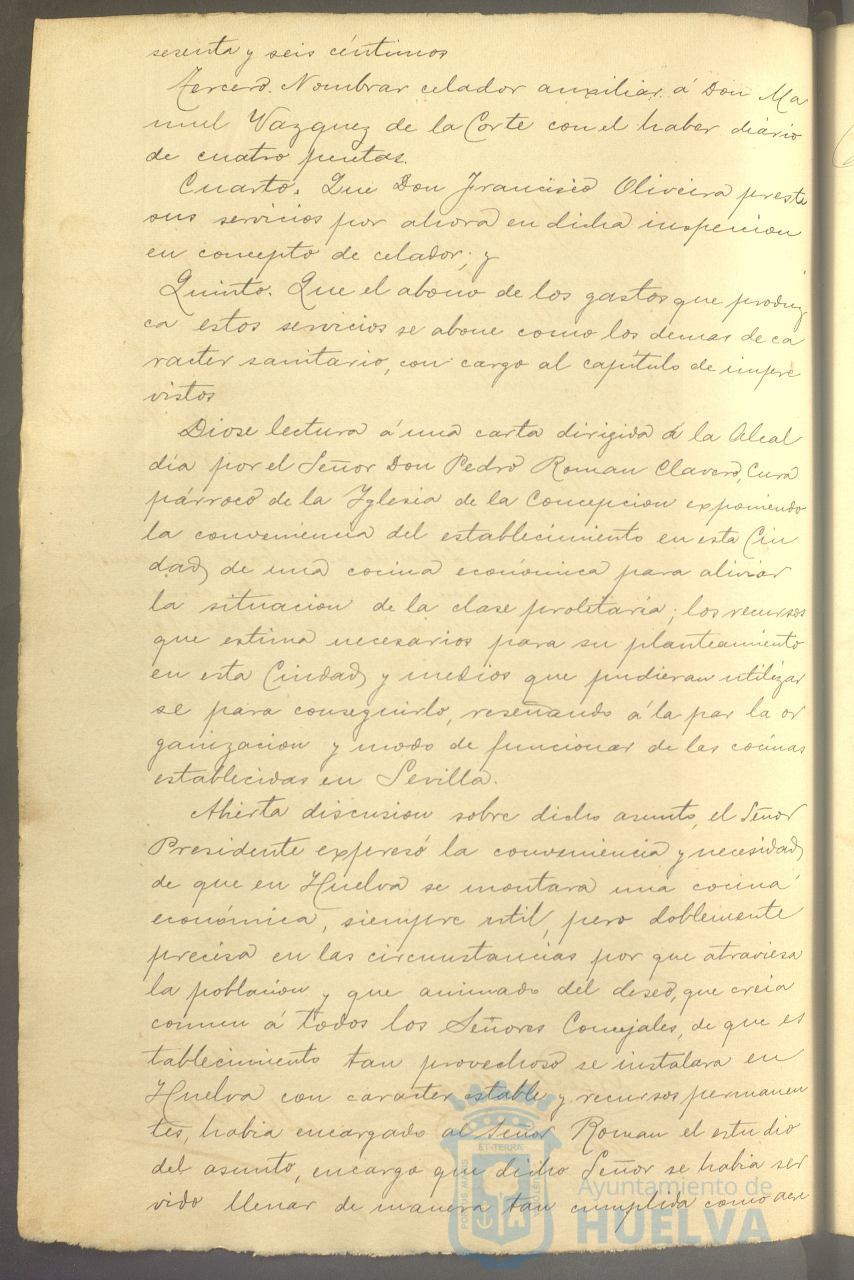 sesenta y seis céntimos
Tercero. Nombrar celador auxiliar á Don Ma
nuel Vazquez de la Corte con el haber diario
de cuatro pesetas.
Cuarto. Que Don Francisco Oliveira preste
sus servicios por ahora en dicha inspeccion
en concepto de celador; y
Quinto. Que el abono de los gastos que produz
ca estos servicios se abone como los demas de ca
racter sanitario, con cargo al capítulo de impre
vistos
Diose lectura á una carta dirigida á la Alcal
día por el Señor Don Pedro Roman Clavero, Cura
párroco de la Yglesia de la Concepcion exponiendo
la conveniencia del establecimiento en esta Ciu
dad, de una cocina económica para aliviar
la situacion de la clase proletaria; los recursos
que estima necesarios para su planteamiento
en esta Ciudad, y medios que pudieran utilizar
se para conseguirlo, reseñando á la par la or
ganizacion y modo de funcionar de las cocinas
establecidas en Sevilla.
Abierta discusion sobre dicho asunto, el Señor
Presidente expresó la conveniencia y necesidad
de que en Huelva se montara una cocina
económica, siempre util, pero doblemente
precisa en las circunstancias por que atraviesa
la poblacion y que animado del deseo, que creia
comun á todos los Señores Concejales, de que es
tablecimiento tan provechoso se instalara en
Huelva con caracter estable y recursos permanen
tes, habia encargado al Señor Roman el estudio
del asunto, encargo que dicho Señor se habia ser
vido llenar de manera tan cumplida como acre
PORTUS MARIS
ET TERRÆ
CUSTODIA
Ayuntamiento de
HUELVA